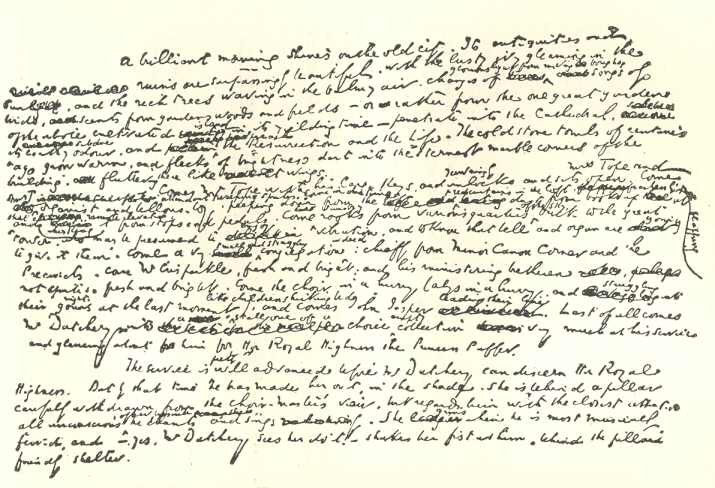 A brilliant morning shines on the old city. Its antiquities and
ruins are surpassingly beautiful, with the lusty ivy gleaming in the
sun, and the rich trees waving in the balmy air. Changes of glorious light from moving boughs, songs of
birds, scents from gardens, woods and fields – or rather from the one great garden
of the whole cultivated island in its yielding time – penetrate into the Cathedral, subdue
its earthy odour, and preach the Resurrection and the Life. The cold stone tombs of centuries
ago grow warm; and flecks of brightness dart into the sternest marble corners of the
building, fluttering there like wings.
Comes Mr Tope with his large keys, and unlocks and sets open. Come Mrs Tope and
attendant sweeping sprites. Come in due time
organist and bellows boy, peeping down from the red curtains in the loft, fearlessly
flapping dust from books up at
that remote elevation
and from stops and pedals. Come rooks from various quarters back to the great
tower; who may be presumed to enjoy vibration, and to know that bell and organ are going
to give it them. Come a very small and straggling congregation indeed: chiefly from Minor Canon Corner and the
Precincts. Come Mr Crisparkle, fresh and bright; and his ministering brethren
not quite so fresh and bright. Come the choir, in a hurry (always in a hurry, and struggling into
their nightgowns at the last moment, like children shirking bed), and comes John Jasper leading their line. Last of all comes
Mr Datchery into a stall, one of a choice empty collection very much at his service
and glancing about him for Her Royal Highness the Princess Puffer.
The service is pretty well advanced before Mr Datchery can discern Her Royal
Highness. But by that time he has made her out, in the shade. She is behind a pillar
carefully withdrawn from the choir-master's view, but regards him with the closest attention
all unconscious of her presence he chants and sings. She grins when he is most musically
fervid, and – yes, Mr Datchery sees her do it! – shakes her fist at him, behind the pillar's
friendly shelter.